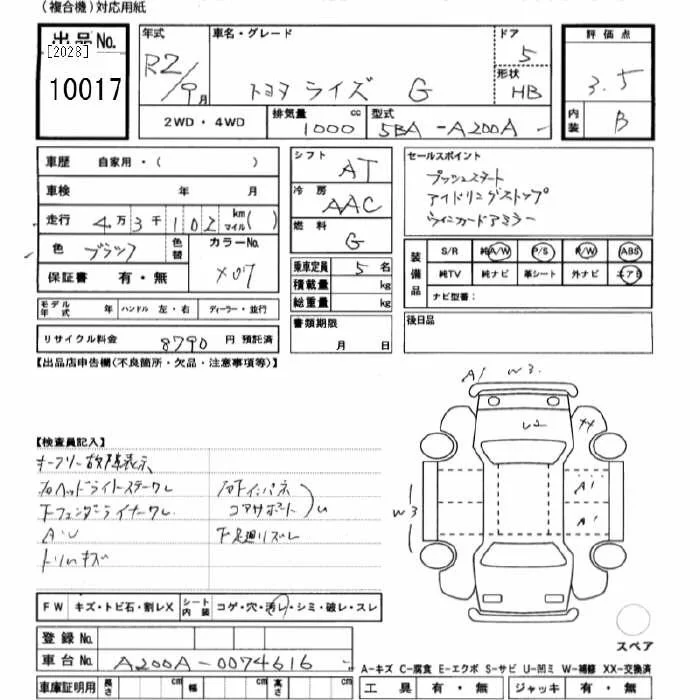 (複合機)対応用紙
出品No.
[2028]
10017
年式
R2/9月
車名・グレード
トヨタ ライズ G
ドア
5
形状
HB
評価点
3.5
内装
B
2WD・4WD
排気量
1000 cc
型式
5BA-A200A-
車歴 自家用・( )
車検 年 月
走行 4万3千102 km マイル( )
色 ブラック 色替 カラーNo. X07
保証書 有・無
モデル年式 年 ハンドル 左・右 ディーラー・並行
リサイクル料金 8790 円 預託済
シフト AT
冷房 AAC
燃料 G
乗車定員 5名
積載量 kg
総重量 kg
書類期限
月 日
セールスポイント
プッシュスタート
アイドリングストップ
ウインカードアミラー
装備品
S/R 純A/W P/S P/W ABS
純TV 純ナビ 革シート 外ナビ エアB
ナビ型番:
後日品
【出品店申告欄(不良箇所・欠品・注意事項等)】
【検査員記入】
A・U
A1 W3
U2 XX
A1
W3
A1
FW キズ・トビ石・割レX シート内装 コゲ・穴・汚レ・シミ・破レ・スレ
登録No.
車台No. A200A-0074616-
車庫証明用 長さ cm 幅 cm 高さ cm
スペア
A-キズ C-腐食 E-エクボ S-サビ U-凹ミ W-補修 XX-交換済
工具 有・無 ジャッキ 有・無